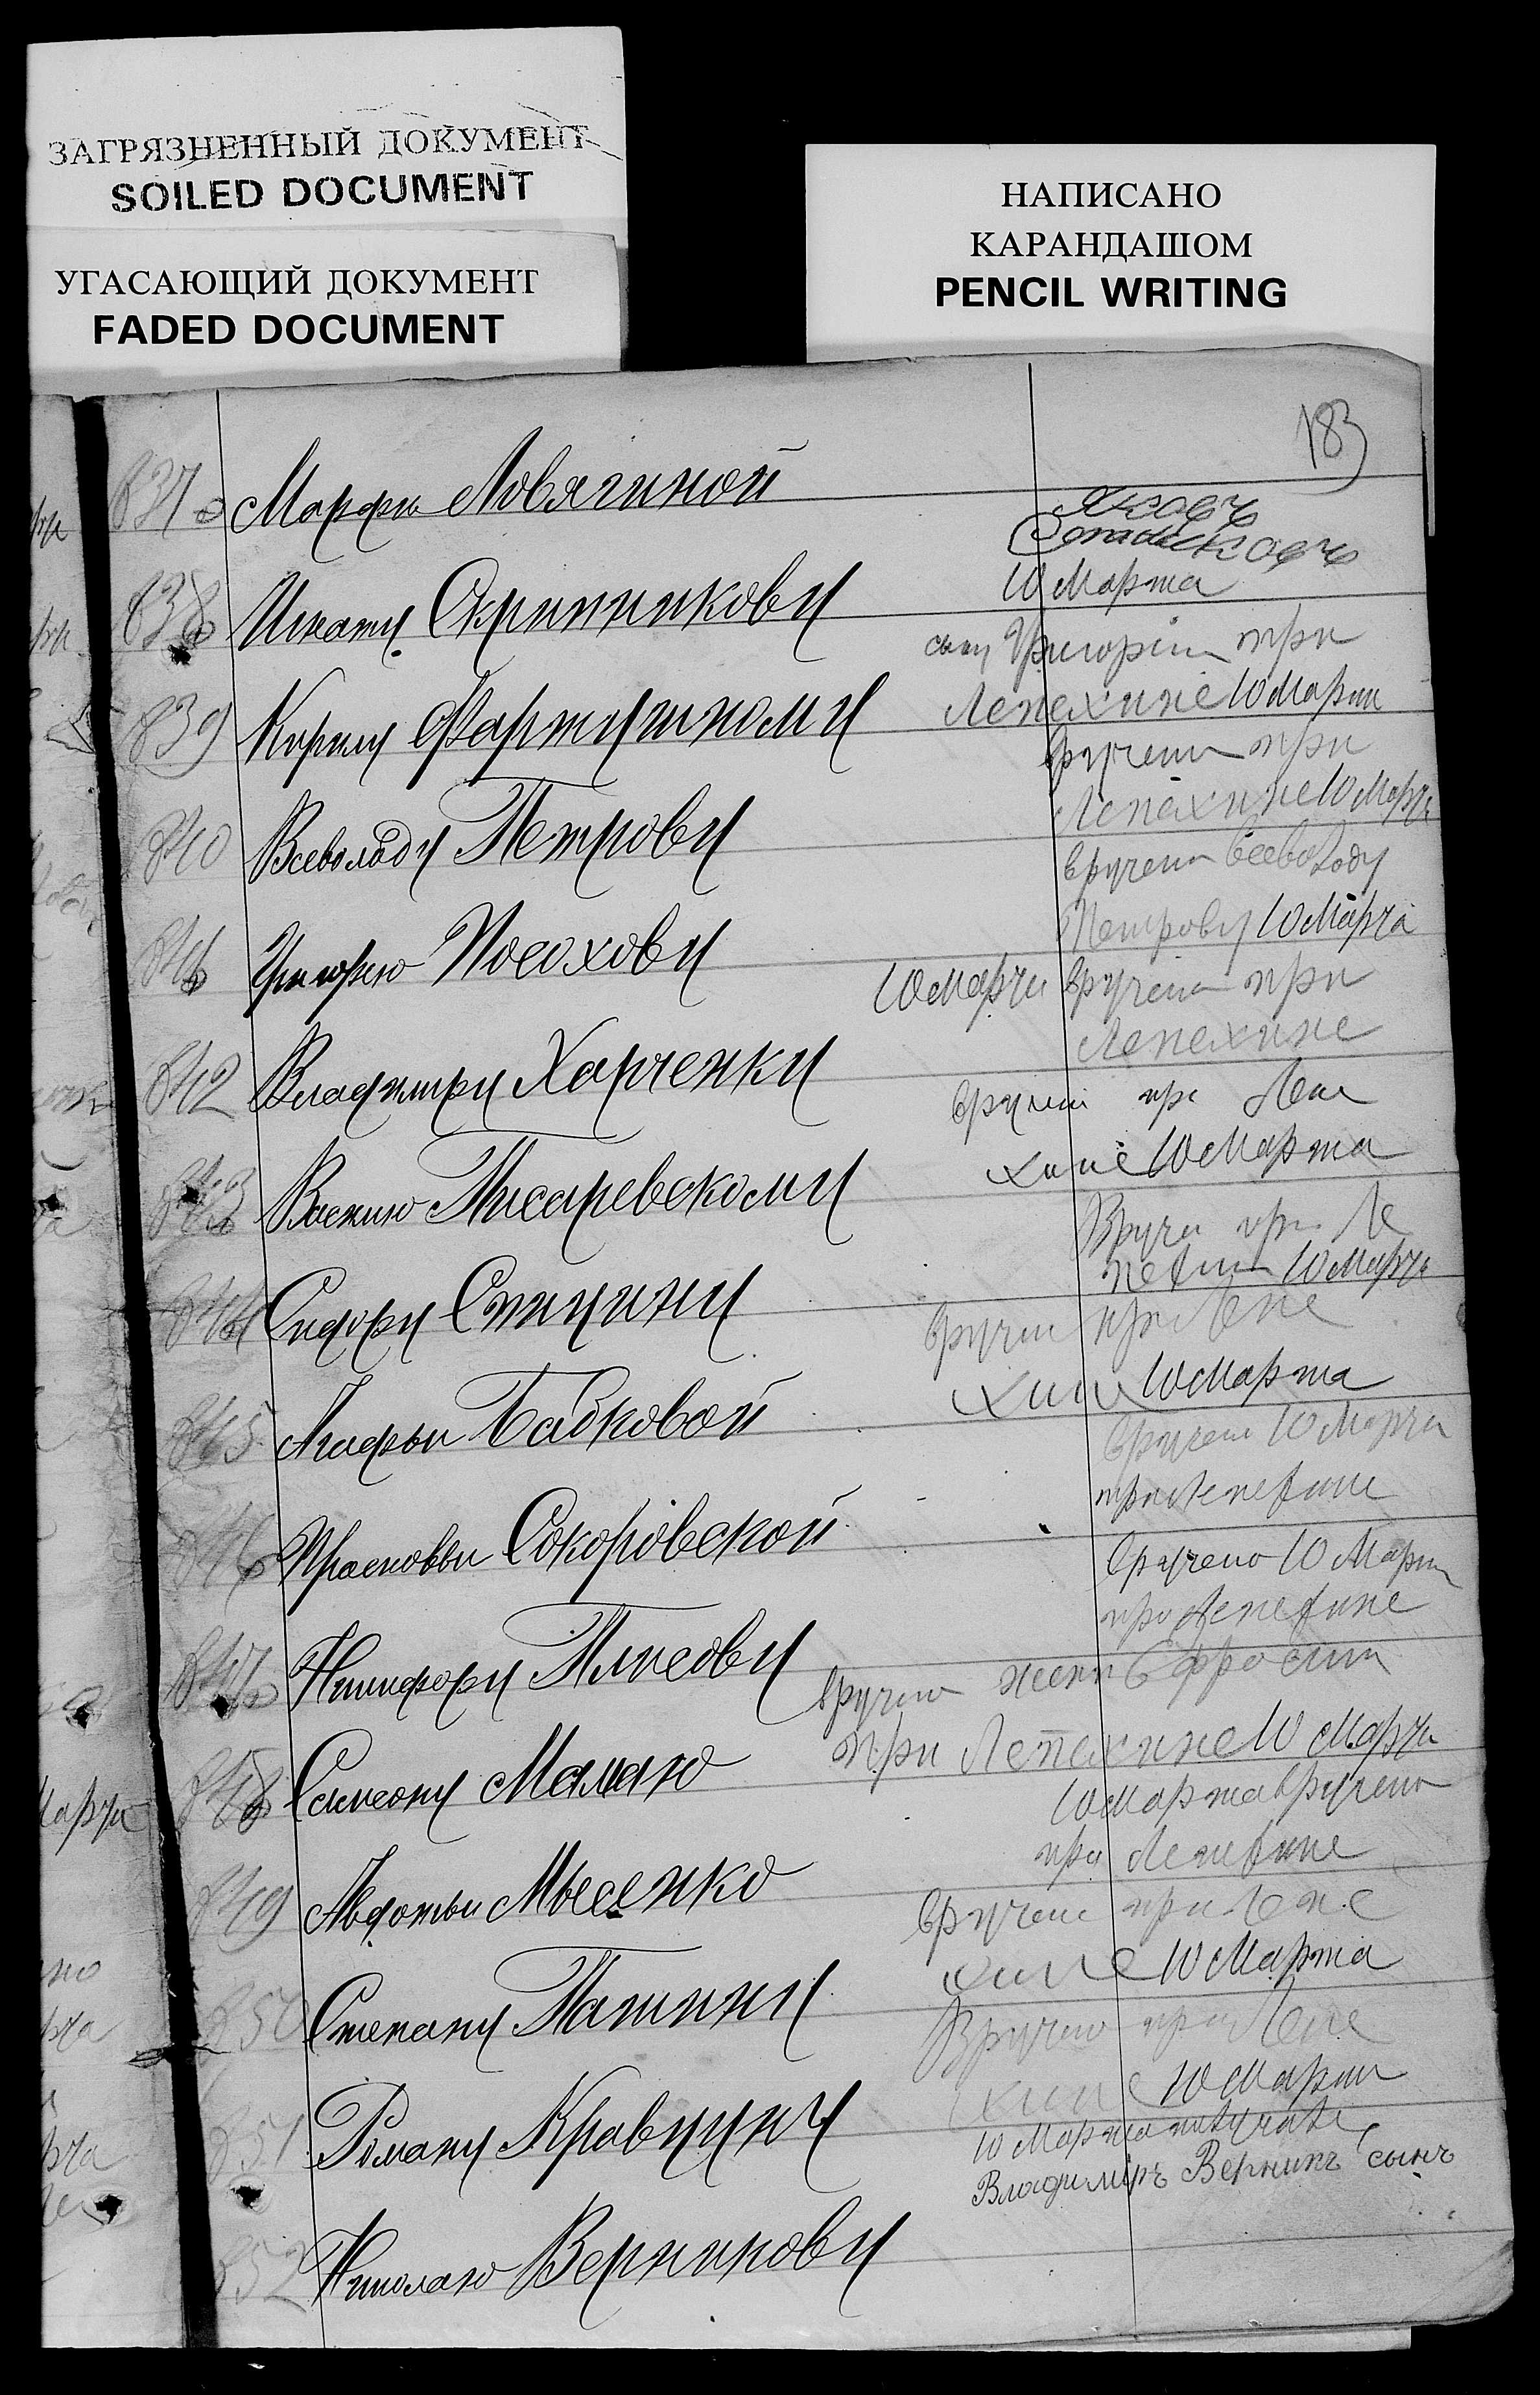 ЗАГРЯЗНЕННЫЙ ДОКУМЕНТ
SOILED DOCUMENT
УГАСАЮЩИЙ ДОКУМЕНТ
FADED DOCUMENT
НАПИСАНО
КАРАНДАШОМ
PENCIL WRITING
183
837 Марфи Ловягиной
838 Игнату Скрипникову
10 Марта
сыну Григорію при
839 Кирилу Фартушному
Лепехине 10 Марта
вручена при
Лепехине 10 Марта
840 Всеволоду Петрову
вручена Всеволоду
Петрову 10 Марта
841 Григорію Посохову
10 Марта вручена при
Лепехине
842 Владимиру Харченку
вручен при Лепе
хине 10 Марта
843 Василию Писаревскому
Вруче при Ле
пехин 10 Марта
844 Сидору Спицину
вручен при Лепе
хине 10 Марта
845 Агафьи Бабковой
вручен 10 Марта
при Лепехине
846 Прасковьи Сокоровской
вручено 10 Марта
при Лепехине
847 Никифору Плисову
вручено жени Ефросин
при Лепехине 10 Марта
848 Симеону Мамаю
10 Марта вручено
при Лепехине
849 Авдотьи Мысенко
вручен при Лепе
хине 10 Марта
850 Степану Пашину
Вручено при Лепе
хине 10 Марта
851 Роману Кравцуну
10 Марта получилъ
Владимиръ Верникъ сынъ
852 Николаю Верникову